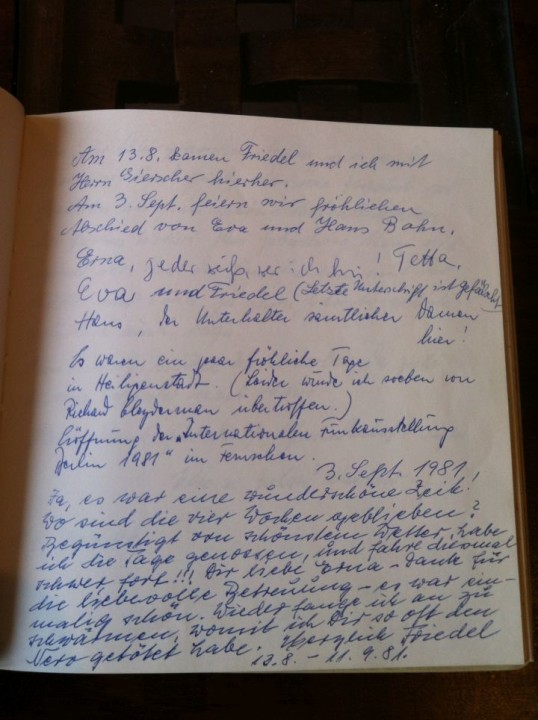 Am 13.8. kamen Friedel und ich mit
Herrn Gierscher hierher.
Am 3. Sept. feiern wir fröhlichen
Abschied von Eva und Hans Bohn.
Erna, jeder ich bin! Tetta.
Eva und Friedel (Letzte Unterschrift ist gefälscht
Hans, der Unterhalter sämtlicher Damen
hier!
Es waren ein paar fröhliche Tage
in Heiligenstadt. (Leider wurde ich soeben von
Richard Cleyderman übertroffen.)
Eröffnung der "Internationalen Funkausstellung
Berlin 1981" im Fernsehen.
3. Sept 1981!
Ja, es war eine wunderschöne Zeit!
Wo sind die vier Wochen geblieben?
Begünstigt von schönstem Wetter, habe
ich die Tage genossen, und fahre diesmal
schwer fort!!! Dir liebe Erna - Dank für
die liebevolle Betreuung - es war ein-
malig schön. Wieder fange ich an zu
schwärmen, womit ich Dir so oft den
Nero getötet habe. Herzlich Friedel
13.8. - 11.9.81.